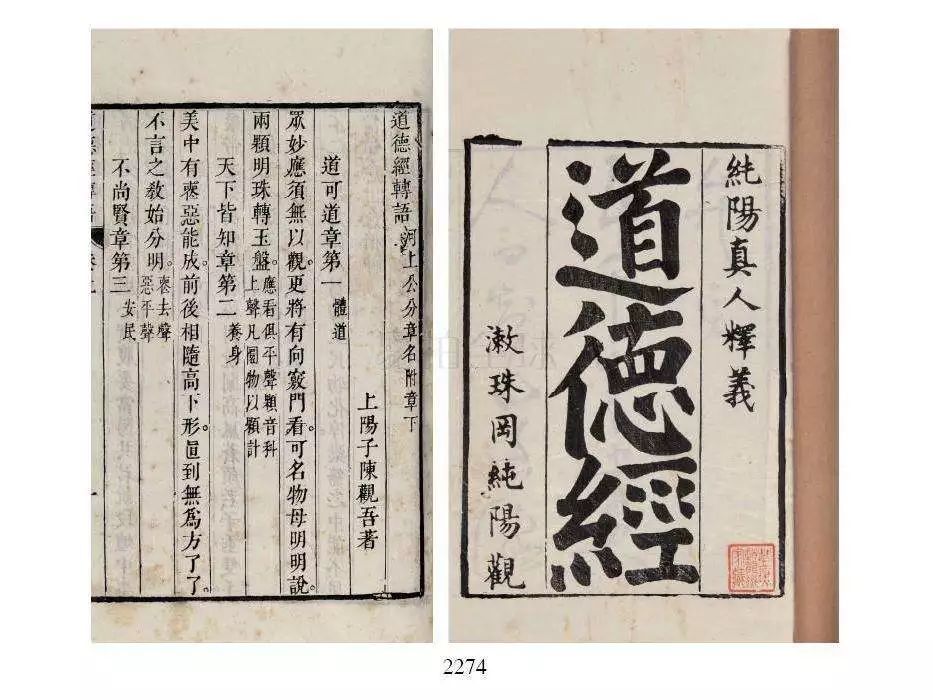 純陽真人釋義
道德經
漱珠岡純陽觀
道德經轉語 河上公分章名附章下
上陽子陳觀吾著
道可道章第一 體道
眾妙應須無以觀。更將有向竅門看。可名物母明明說。
兩顆明珠轉玉盤。應看俱平聲顆音科上聲凡圓物以顆計
天下皆知章第二 養身
美中有惡惡能放。前後相隨高下形。直到無為方了了。
不言之教始分明。惡去聲惡平聲
不尚賢章第三 安民
2274